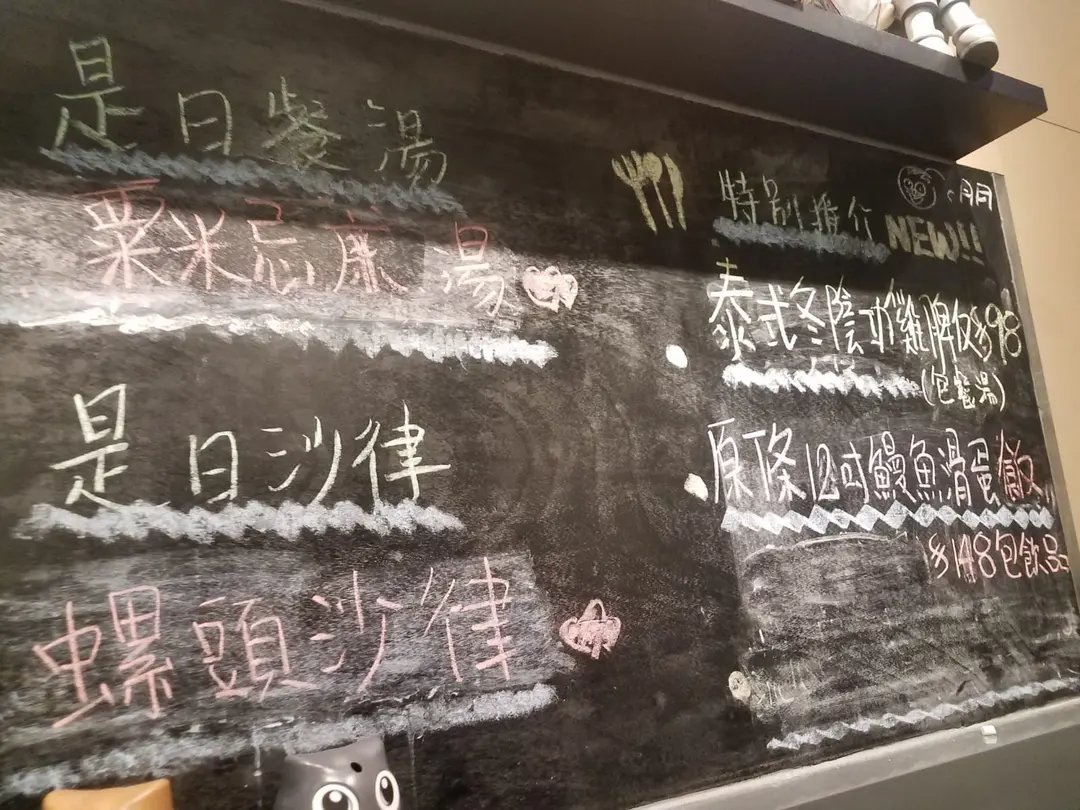 是日餐湯
粟米忌廉湯
是日沙律
螺頭沙律
特別推介 NEW!!
泰式冬陰功雞脾飯$98
(包餐湯)
原條12寸鰻魚滑蛋飯
$148包飲品